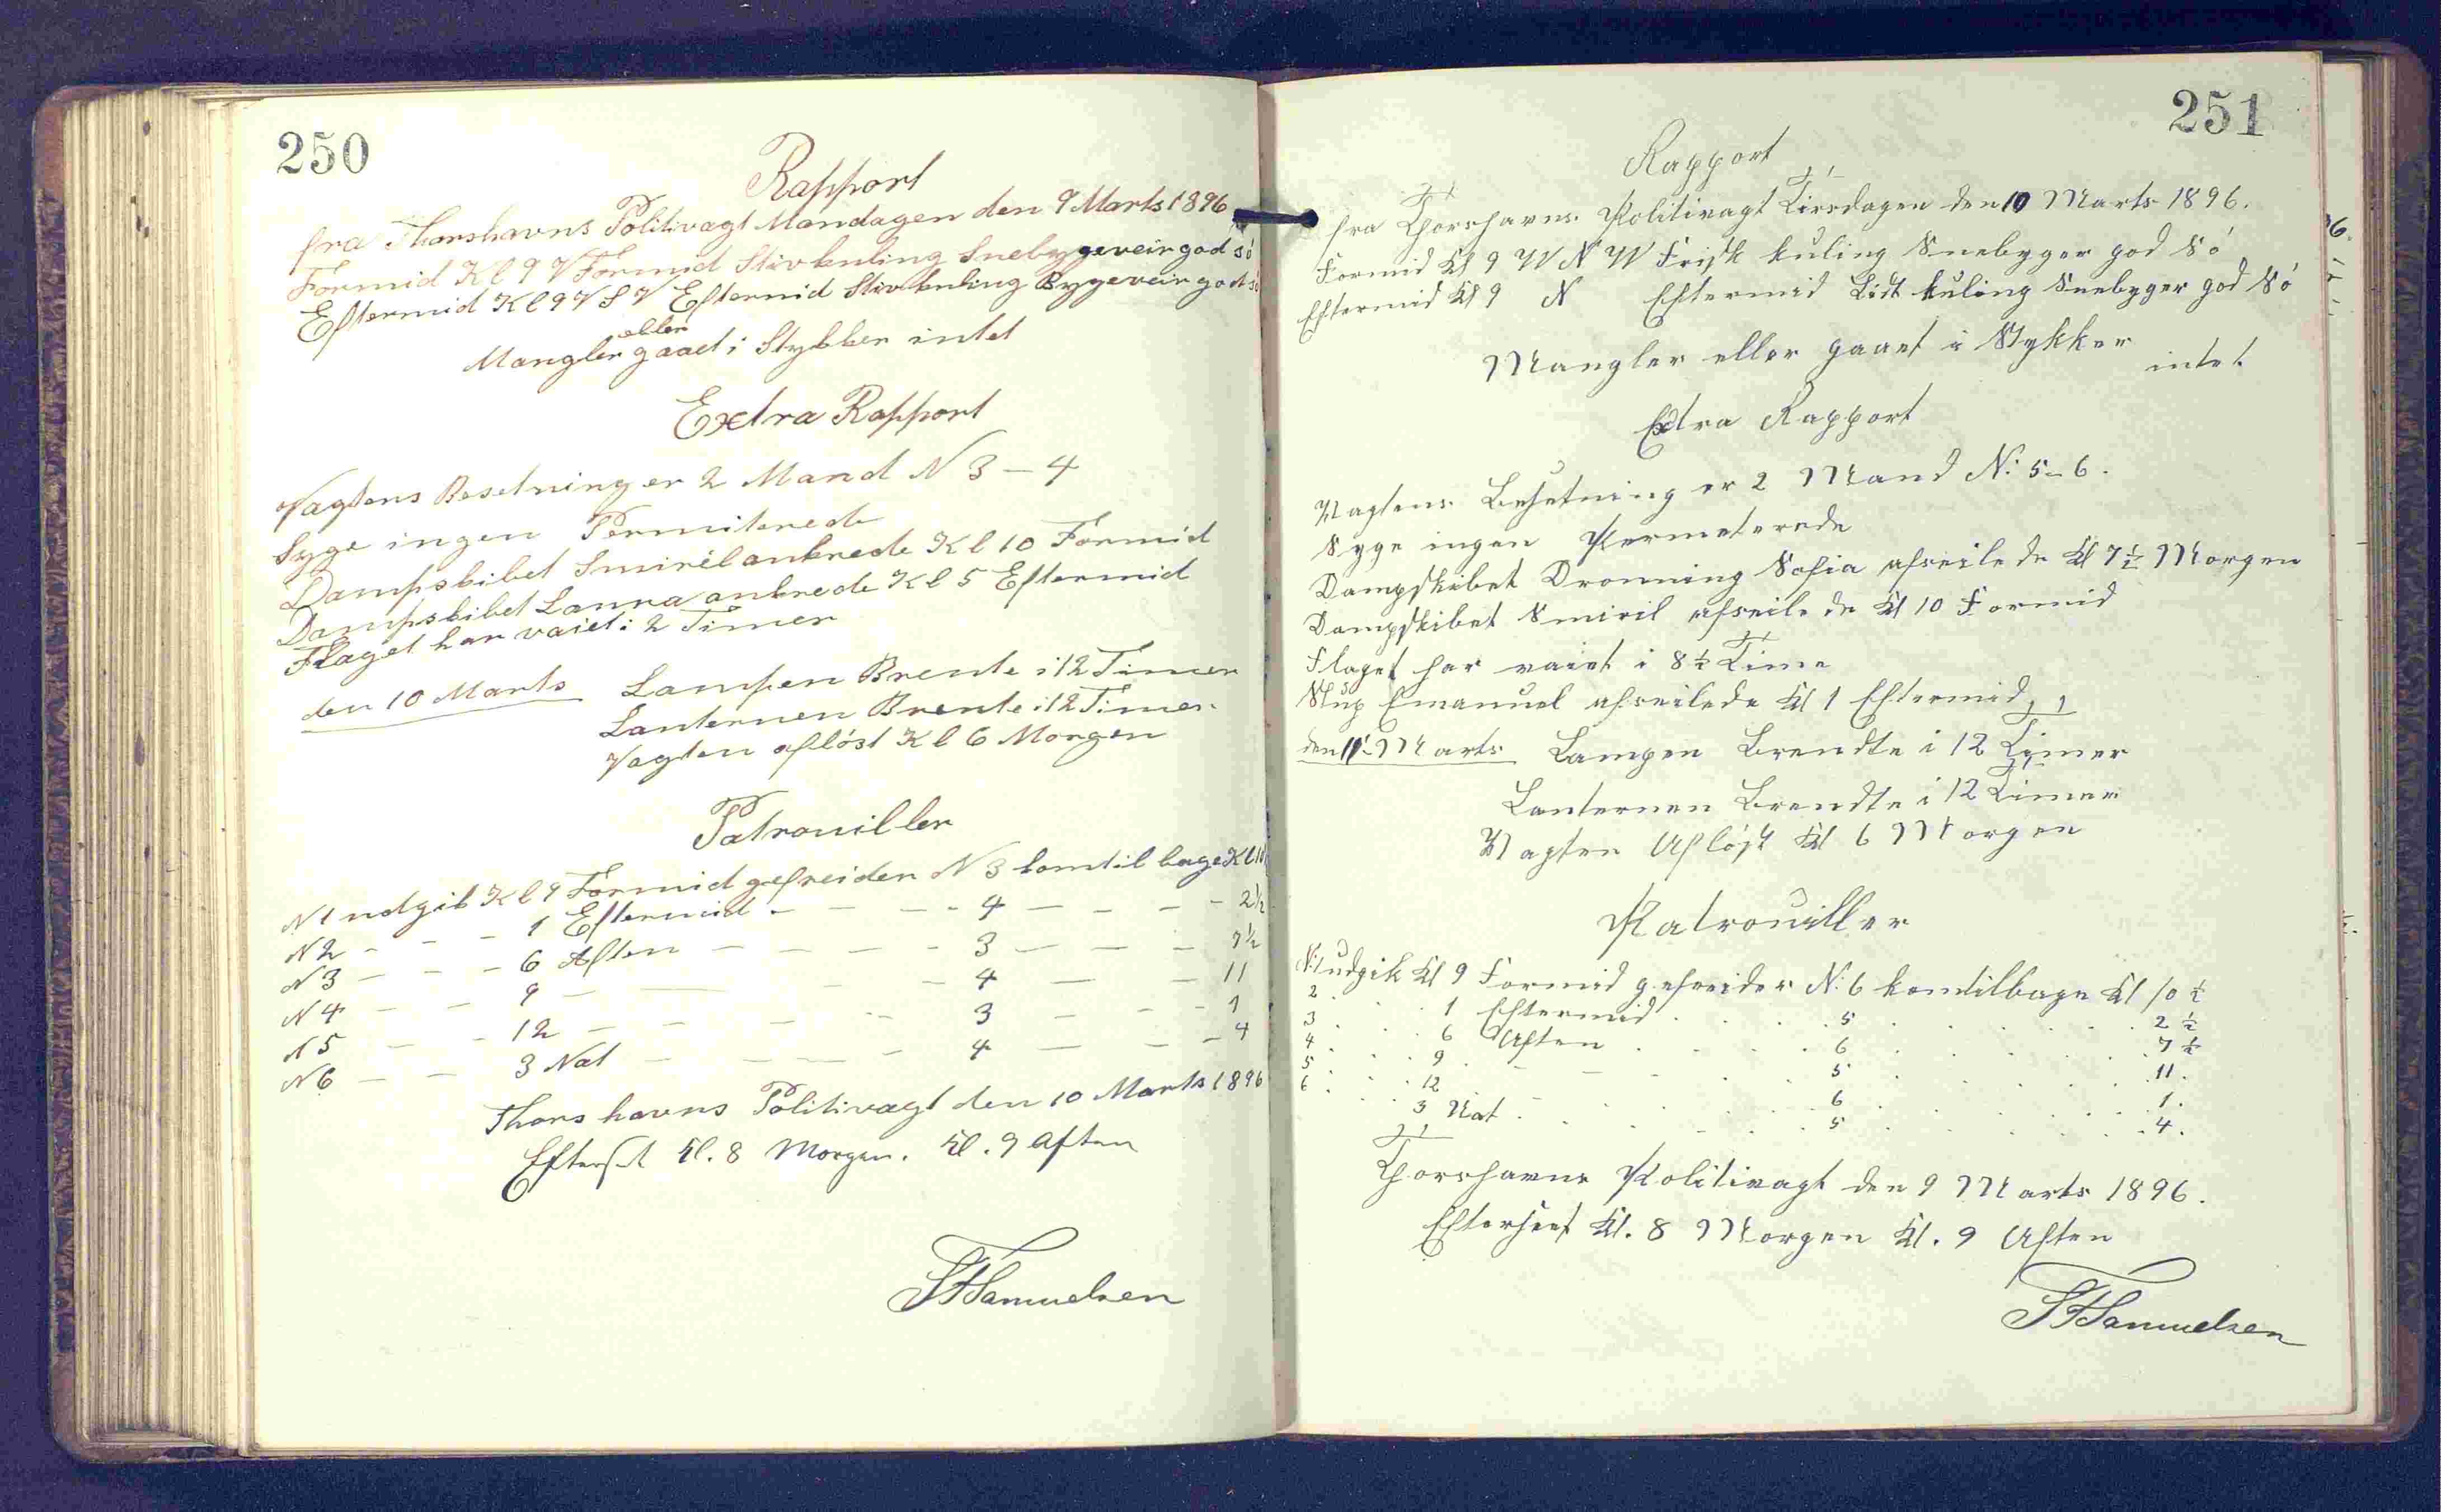 250
Rapport
fra Thorshavns Politivagt Mandagen den 9 Marts 1896
Formid Kl 9 V Formid Stivkuling Snebygeveir god só
Eftermid Kl 9 V S V Eftermid Stivkuling Bygeveir god só
eller
Mangler gaaet i Stykker intet
Extra Rapport
Vagtens Besetning er 2 Mand N 3 — 4
Syge ingen Permiterede
Dampskibet Smiril ankrede Kl 10 Formid
Dampskibet Laura ankrede Kl 5 Eftermid
Flaget har vaiet i 2 Timer
den 10 Marts Lampen Brente i 12 Timer
Lanternen Brente i 12 Timer
Vagten aflóst Kl 6 Morgen
Patrouiller
N 1 udgik Kl 9 Formid gefreider N 3 komtilbage Kl
N 2 - - - 1 Eftermid - - - - 4 - - - - 2½
N 3 - - - 6 Aften - - - - 3 - - - 7½
N 4 - - 9 - - - - 4 - - 11
N 5 - - 12 - - - - 3 - - - 1
N 6 - - 3 Nat - - - - 4 - - - 4
Thorshavns Politivagt den 10 Marts 1896
Efterset Kl. 8 Morgen. Kl. 9 Aften
Samuelsen
251
Rapport
fra Thorshavns Politivagt Tirsdagen den 10 Marts 1896.
Formid Kl 9 W N W Frisk kuling Snebyger god Só
Eftermid Kl 9 N Eftermid Lidt kuling Snebyger god Só
Mangler eller gaaet i Stykker intet
Extra Rapport
Vagtens Besetning er 2 Mand N: 5-6.
Syge ingen Permeterede
Dampskibet Dronning Sofia afseilede Kl 7½ Morgen
Dampskibet Smiril afseilede Kl 10 Formid
Flaget har vaiet i 8½ Time
Slup Emanuel afseilede Kl 1 Eftermid
den 11 Marts Lampen Brendte i 12 Timer
Lanternen Brendte i 12 Timer
Vagten Aflóst Kl 6 Morgen
Patrouiller
N: 1 udgik Kl 9 Formid gefreider N: 6 komtilbage Kl 10½
2 . . . 1 Eftermid . . . . 5 . . . . 2½
3 . . . 6 Aften . . . . 6 . . . . 7½
4 . . . 9 - - - - 5 . . . . 11.
5 . . . 12 . . . . 6 . . . . 1.
6 . . . 3 Nat . . . . 5 . . . . 4.
Thorshavns Politivagt den 9 Marts 1896.
Efterseet Kl. 8 Morgen Kl. 9 Aften
Samuelsen